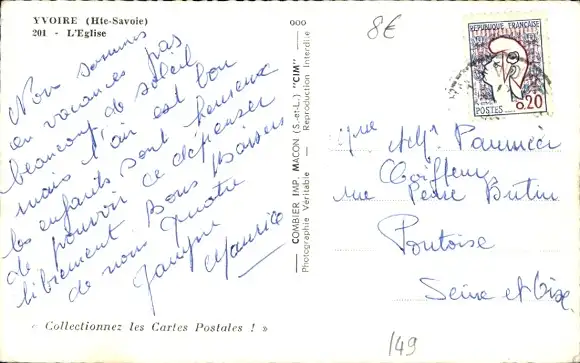 YVOIRE (Hte-Savoie)
201 - L'Eglise
Nous sommes
en vacances pas
beaucoup de soleil
mais l'air est bon
les enfants sont heureux
de pouvoir se dépenser
librement Bons Baisers
de nous quatre
Maurice
COMBIER IMP. MACON (S.-et-L.) "CIM"
Photographie Véritable - Reproduction Interdite
« Collectionnez les Cartes Postales ! »
8€
REPUBLIQUE FRANÇAISE
POSTES 0.20
Coiffeur
rue Pierre Butin
Pontoise
Seine et Oise
149